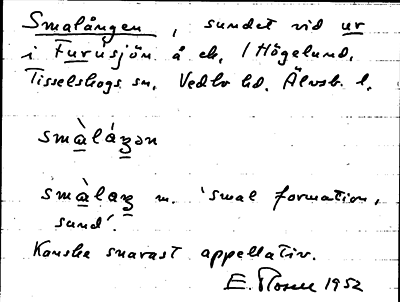 Smalången, sundet vid ur
i Furusjön å ek. 1 Högelund,
Tisselskogs sn, Vedbo hd. Älvsb. l.
smàláŋən
smàlaŋ m. 'smal formation,
sund'.
Kanske snarast appellativ.
E. Rosell 1952